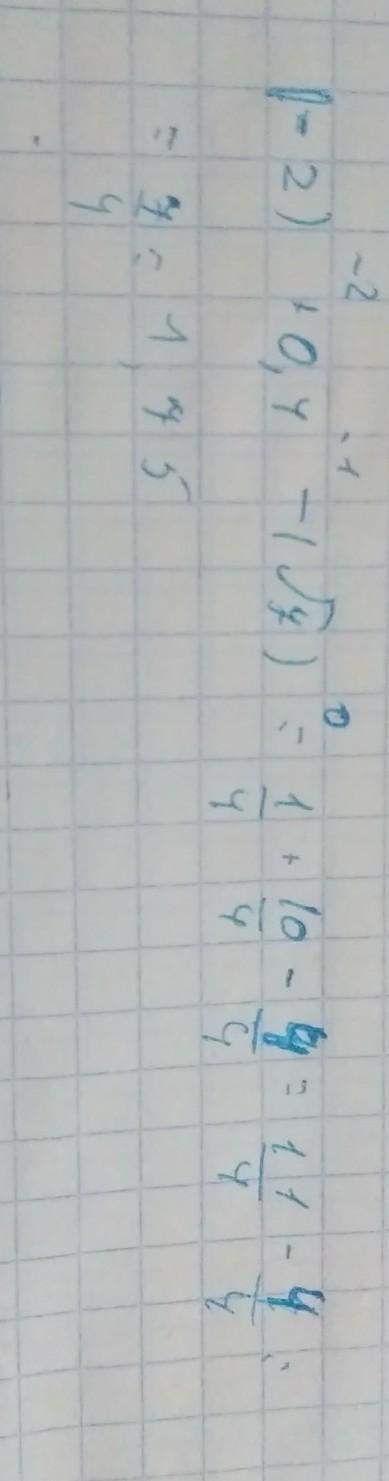 (-2)⁻² + 0,4⁻¹ - (√7)⁰ = 1/4 + 10/4 - 4/4 = 11/4 - 4/4 =
= 7/4 = 1,75